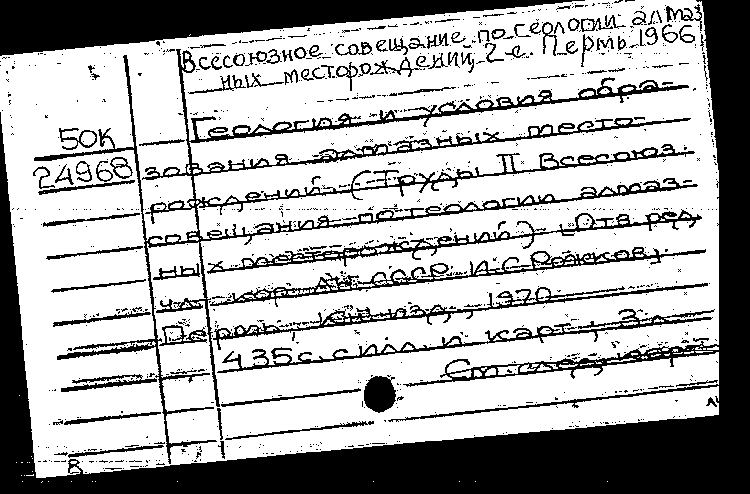 Всесоюзное совещание по геологии алмаз
ных месторождений, 2-е. Пермь. 1966
50К
24968
Геология и условия обра-
зования алмазных место-
рождений (Труды II Всесоюз.
совещания по геологии алмаз-
ных месторождений) [Отв. ред.
чл.-кор. АН СССР И.С. Рожков].
Пермь, кн. изд., 1970.
435 с. с илл. и карт.; 3 л.
См. след. карт.
В